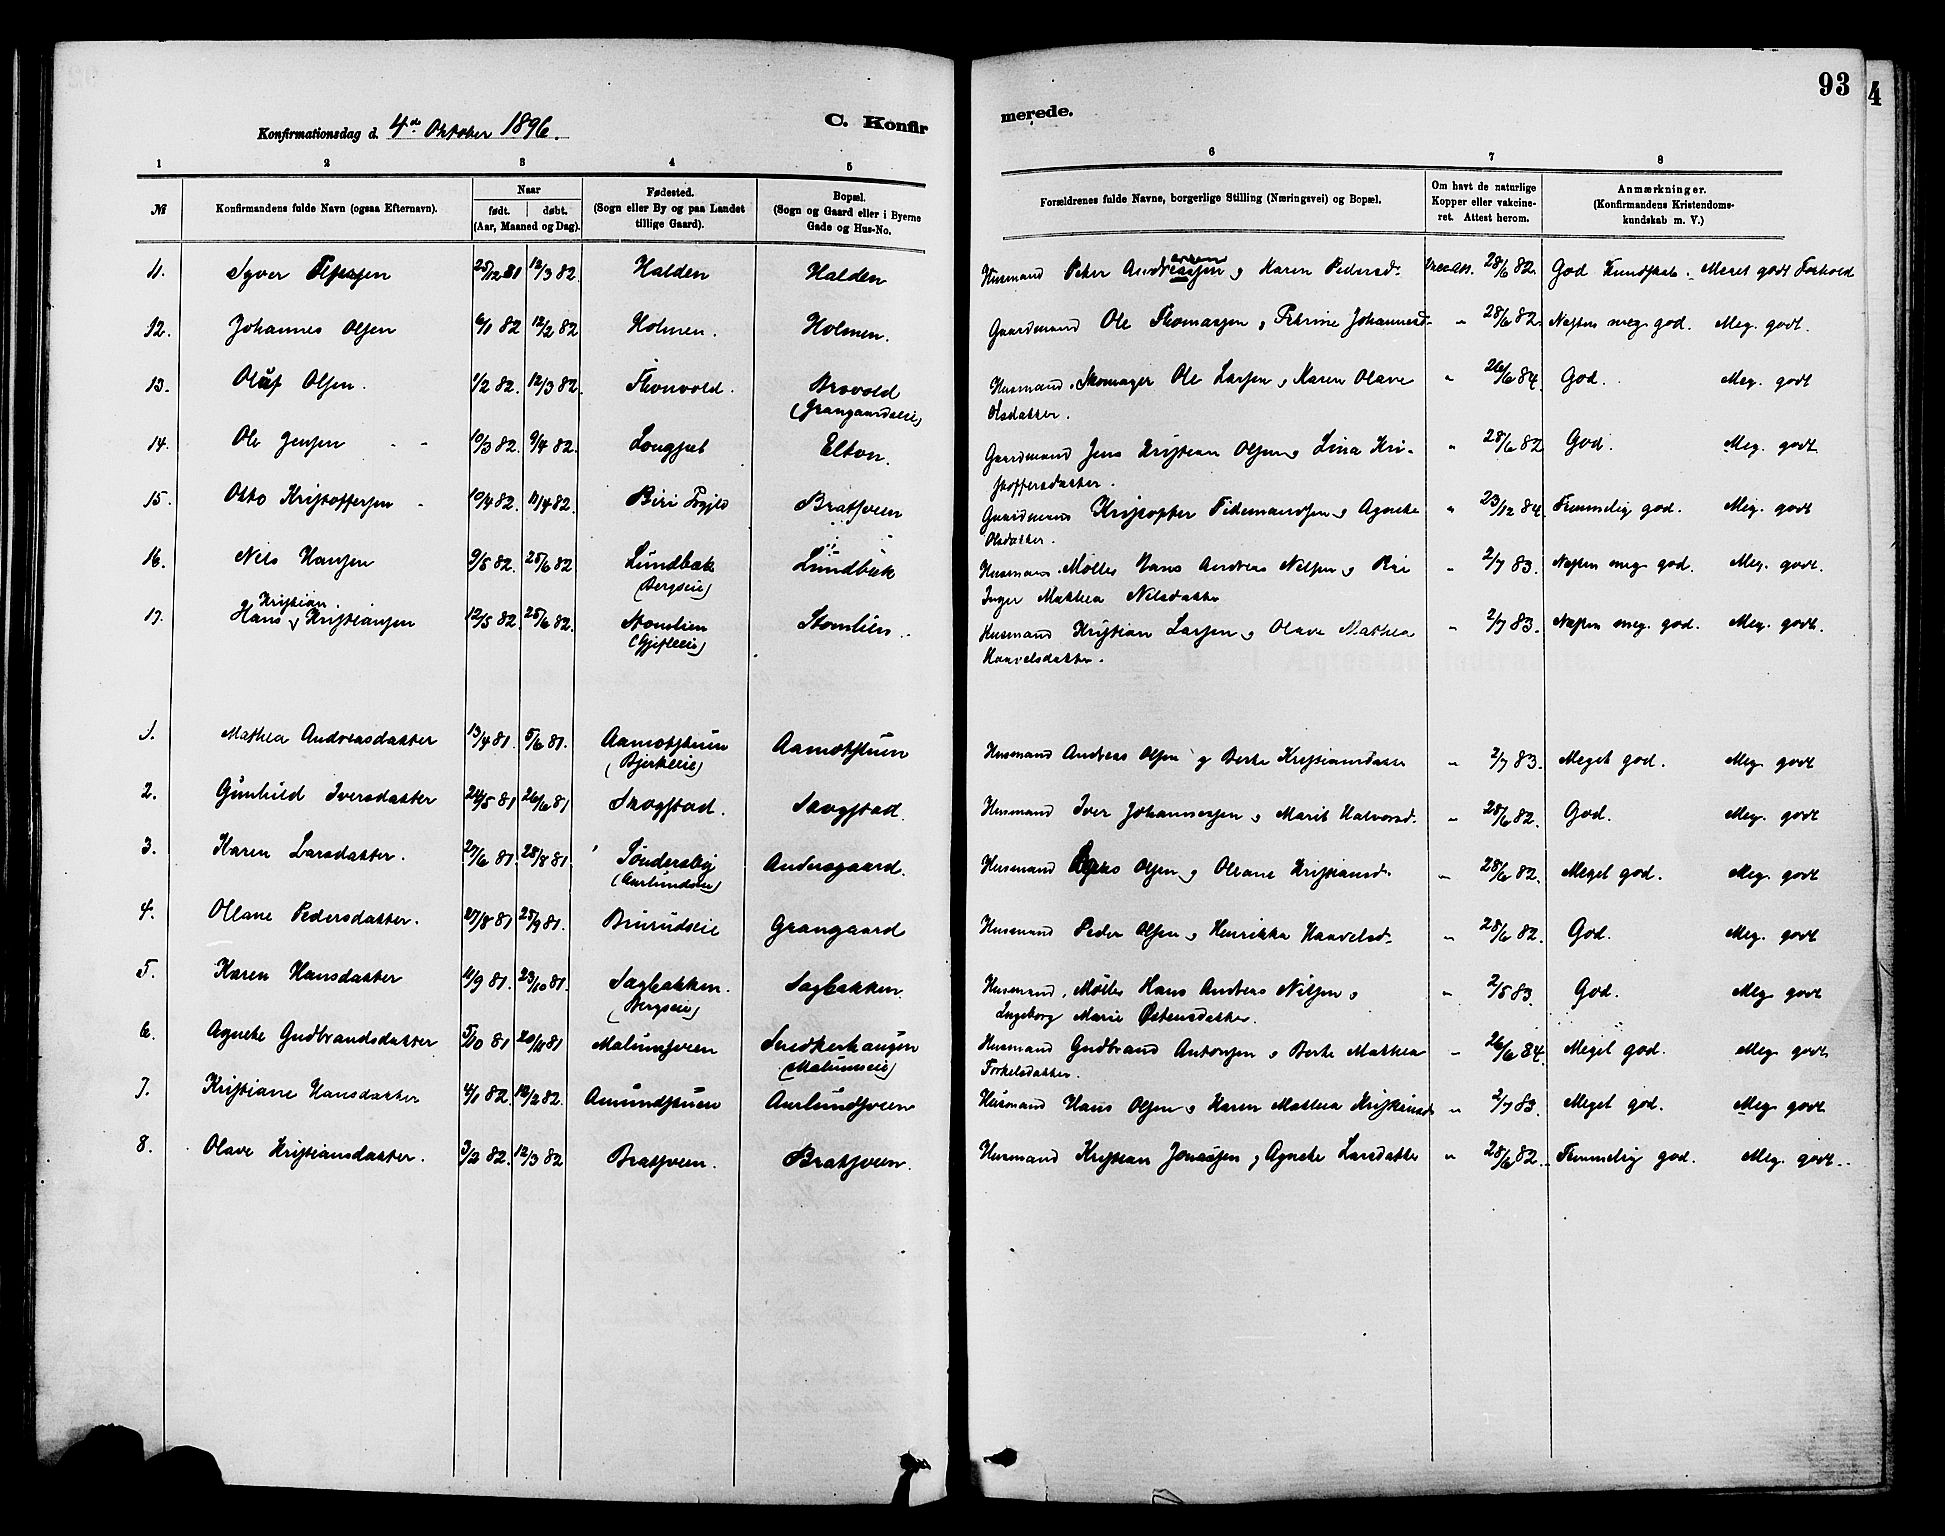 93
4
Konfirmationsdag d. 4de Oktober 1896.
C. Konfir
merede.
1 2 3 4 5 6 7 8
№ Konfirmandens fulde Navn (ogsaa Efternavn). Naar født. døbt. (Aar, Maaned og Dag). Fødested. (Sogn eller By og paa Landet tillige Gaard). Bopæl. (Sogn og Gaard eller i Byerne Gade og Hus-No. Forældrenes fulde Navne, borgerlige Stilling (Næringsvei) og Bopæl. Om havt de naturlige Kopper eller vakcineret. Attest herom. Anmærkninger. (Konfirmandens Kristendomskundskab m. V.)
11. Syver 25/12 81 12/3 82. Halden Halden Husmand Peter og Karen Pedersd. 28/6 82. God Kundskab. Meget godt Forhold
12. Johannes Olsen 6/1 82 12/2 82. Holmen. Holmen. Gaardmand Ole Thomassen og Petrine Johannesd. " 28/6 82. Næsten meg god. Meg. godt.
13. Oluf Olsen. 1/2 82. 12/3 82. Brovold (Grangaardseie) Husmand, Skomager Ole Larsen og Karen Olave " 26/6 84. God. Meg. godt
Olsdatter.
14. Ole Jensen 10/3 82. 9/4 82. Elton. Gaardmand Jens Kristian Olsen og Lina Kri- " 28/6 82 God. Meg. godt
stoffersdatter.
15. Otto Kristoffersen 10/4 82. 11/4 82. Biri Bratsveen Gaardmand Kristopher Tidemandsen og Agnethe " 23/12 84. Temmelig god. Meg. godt
Olsdatter.
16. Nils Hansen 9/5 82. 25/6 82 Lundbæk (Bergseie) Lundbæk Husmand, Møller Hans Andreas Nilsen og " 2/7 83. Næsten meg god. Meg. godt.
Inger Mathea Nilsdatter
17. Hans Kristian Kristiansen 12/5 82. 25/6 82. Stomlien Stomlien. Husmand Kristian Larsen og Olave Mathea " 2/7 83. Næsten meg. god. Meg. godt.
Haavelsdatter.
1. Mathea Andreasdatter 13/4 81. 5/6 81. Aamotstuen (Bjerkeeie) Aamotstuen Husmand Andreas Olsen og Berte Kristiansdatter " 2/7 83. Meget god. Meg godt
2. Gunhild Iversdatter 24/5 81 26/6 81 Skogstad. Skogstad. Husmand Iver Johannessen og Marit Halvorsd. " 28/6 82. God. Meg. godt
3. Karen Larsdatter. 27/6 81. 28/8 81. Andersgaard. Husmand Olsen og Oleane Kristiansd. " 28/6 82. Meget god. Meg. godt
4. Ollane Pedersdatter. 27/8 81 25/9 81. Brurudseie Grangaard Husmand Peder Olsen og Henrikka Haavelsd. " 28/6 82. God. Meg. godt
5. Karen Hansdatter 11/9 81. 23/10 81. Sagbakken. (Bergseie) Sagbakken. Husmand, Møller Hans Andreas Nilsen og " 2/5 83. God. Meg godt
Ingeborg Marie Østensdatter.
6. Agnethe Gudbrandsdatter 5/10 81 20/11 81 Malumsveen Snedkerhaugen (Malumseie) Husmand Gudbrand Antonsen og Berte Mathea " 26/6 84. Meget god. Meg godt
Torkelsdatter.
7. Kristiane Hansdatter 4/1 82. 12/2 82. Amundstuen Aurlundsveen Husmand Hans Olsen og Karen Mathea Kristiansd. " 2/7 83. Meget god. Meg godt
8. Olave Kristiansdatter. 3/2 82. 12/3 82 Bratsveen. Bratsveen. Husmand Kristian Jonassen og Agnethe Larsdatter " 28/6 82. Temmelig god. Meg. godt.